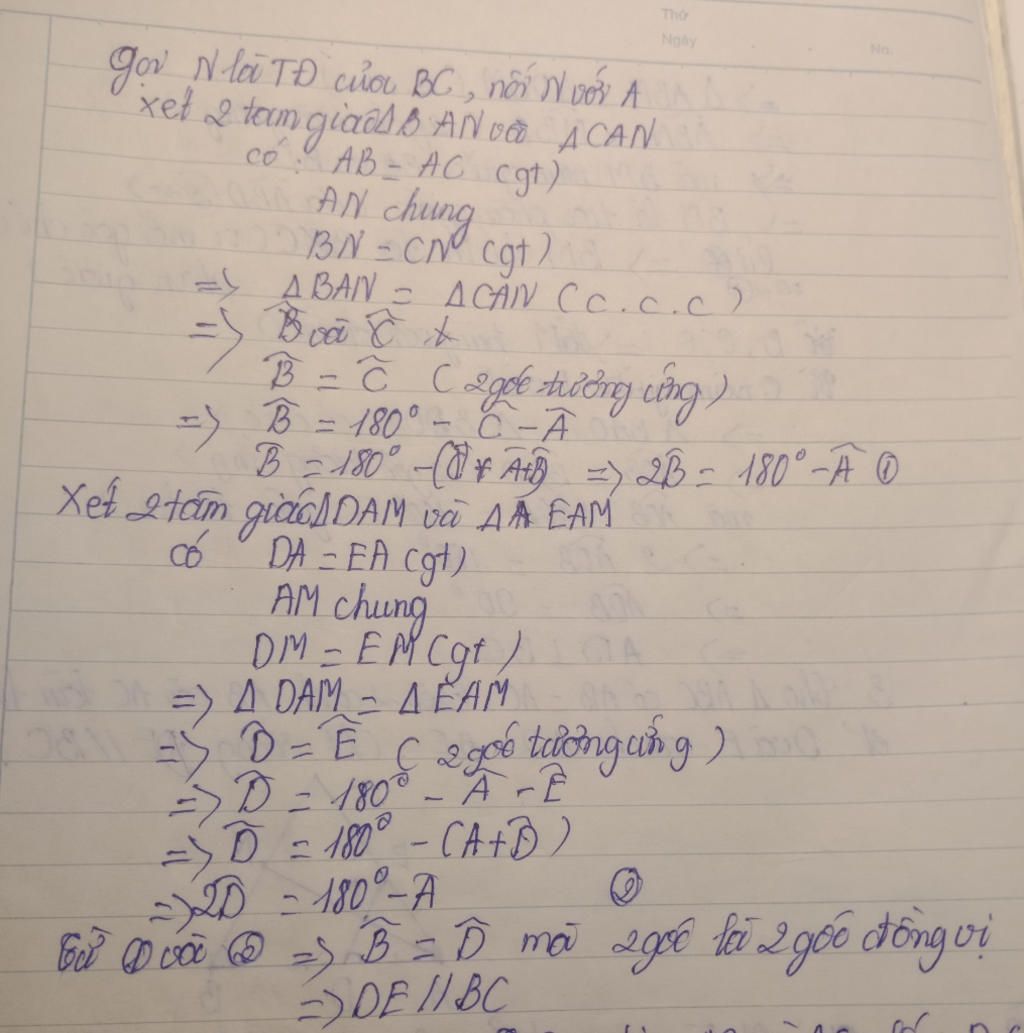 Thứ
Ngày No.
Gọi N là TĐ của BC, nối N với A
Xét 2 tam giác ΔBAN và ΔCAN
có: AB = AC (gt)
AN chung
BN = CN (gt)
=> ΔBAN = ΔCAN (c.c.c)
=> B̂ và Ĉ
B̂ = Ĉ (2 góc tương ứng)
=> B̂ = 180° - Ĉ - Â
B̂ = 180° - (Â+B̂) => 2B̂ = 180° - Â ①
Xét 2 tam giác ΔDAM và Δ EAM
có DA = EA (gt)
AM chung
DM = EM (gt)
=> ΔDAM = ΔEAM
=> D̂ = Ê (2 góc tương ứng)
=> D̂ = 180° - Â - Ê
=> D̂ = 180° - (A+D̂)
=> 2D̂ = 180° - Â ②
Từ ① và ② => B̂ = D̂ mà 2 góc là 2 góc đồng vị
=> DE // BC